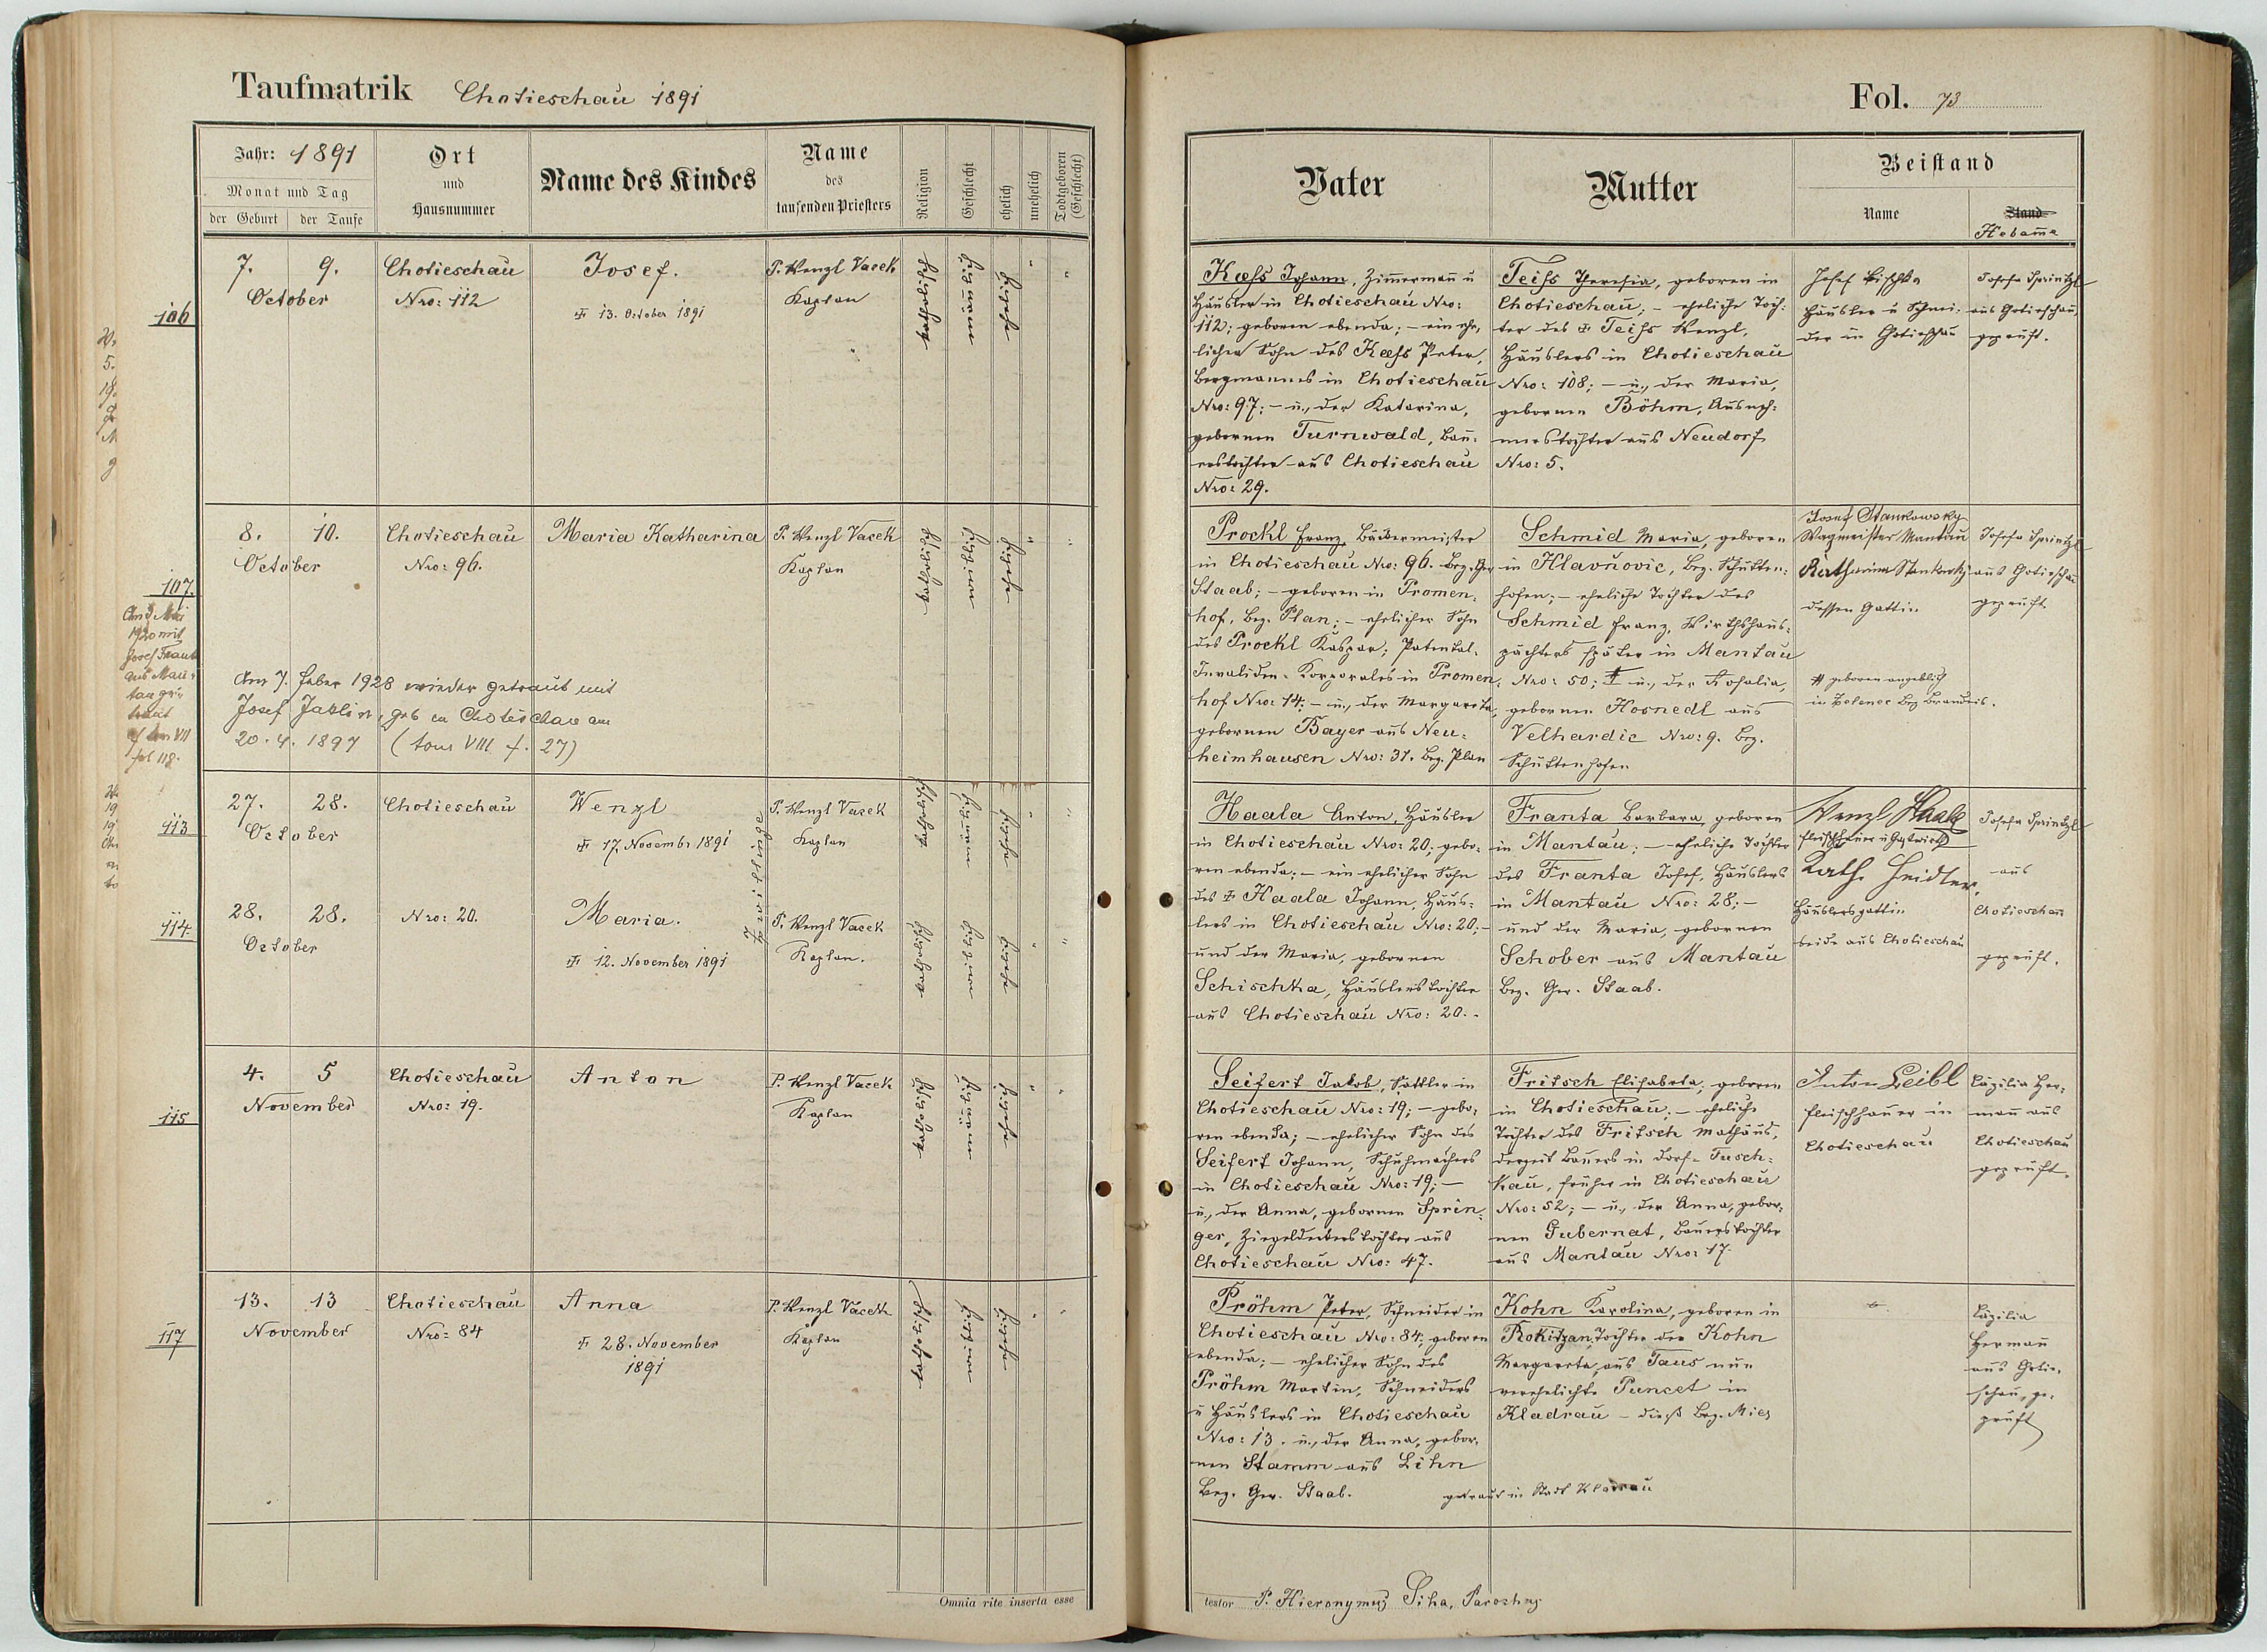 Taufmatrik Chotieschau 1891
Jahr: 1891
Monat und Tag
der Geburt
der Taufe
Ort
und
Hausnummer
Name des Kindes
Name
des
taufenden Priesters
Religion
Geschlecht
ehelich
unehelich
Todtgeboren
(Geschlecht)
106
7. 9.
October
Chotieschau
Nro: 112
Josef.
13. October 1891
P. Wenzl Vacek
Kaplan
107.
8. 10.
October
Chotieschau
Nro: 96.
Maria Katharina
P. Wenzl Vacek
Kaplan
Josef Frank
aus Man-
fol 118.
Am 7. Feber 1928 wieder getraut mit
Josef Jaklin, geb in Chotieschau am
20. 4. 1897 (tom VIII f. 27)
113
27. 28.
October
Chotieschau
Wenzl
17. Novembr 1891
P. Wenzl Vacek
Kaplan
Zwillinge
114.
28. 28.
October
Nro: 20.
Maria.
12. November 1891
P. Wenzl Vacek
Kaplan.
115
4. 5
November
Chotieschau
Nro: 19.
Anton
P. Wenzl Vacek
Kaplan
117
13. 13
November
Chotieschau
Nro: 84
Anna
28. November
1891
P. Wenzl Vacek
Kaplan
Omnia rite inserta esse
Fol. 73
Vater
Mutter
Beistand
Name
Stand
Hebamme
Johann, Zimmermann u
Häusler in Chotieschau Nro:
112; geboren ebenda; – ein ehe,
licher Sohn des Peter,
Bergmannes in Chotieschau
Nro: 97; – u., der Katarina,
gebornen Turnwald, Bau:
erstochter aus Chotieschau
Nro: 29.
Theresia, geboren in
Chotieschau; – eheliche Toch:
ter des Wenzl,
Häuslers in Chotieschau
Nro: 108; – u., der Maria,
gebornen Böhm, Ausneh:
merstochter aus Neudorf
Nro: 5.
Josef
Häusler u Schnei:
der in Chotieschau
Josefa Sprinzl
aus Chotieschau,
geprüft.
Prockl Franz, Bäckermeister
in Chotieschau Nro: 96. Bez. Ger
Staab; – geboren in Promen,
hof, Bez. Plan; – ehelicher Sohn
des Prockl Kaspar, Patental-
Invaliden-Korporales in Promen,
hof Nro: 14. – u., der Margareta,
gebornen Bayer aus Neu:
heimhausen Nro: 31. Bez. Plan
Schmid Maria, geboren
in Hlavňovic, Bez. Schütten:
hofen; – eheliche Tochter des
Schmid Franz, Wirthshaus:
pächters später in Mantau
Nro: 50; u., der Rosalia,
gebornen Hosnedl aus
Velhardic Nro: 9. Bez.
Schüttenhofen
Josef Stankowsky
Wagmeister Mantau
Katharina Stankowsky
dessen Gattin
geboren angeblich
in Bez Brandeis.
Josefa Sprinzl
aus Chotieschau
geprüft
Haala Anton, Häusler
in Chotieschau Nro: 20; gebo:
ren ebenda; – ein ehelicher Sohn
des Haala Johann, Häus:
lers in Chotieschau Nro: 20; –
und der Maria, gebornen
Schischka, Häuslerstochter
aus Chotieschau Nro: 20. –
Franta Barbara, geboren
in Mantau; – eheliche Tochter
des Franta Josef, Häuslers
in Mantau Nro: 28; –
und der Maria, gebornen
Schober aus Mantau
Bez. Ger. Staab.
Wenzl Haala
Fleischhauer u Gastwirth
Kath. Heidler,
Häuslersgattin
beide aus Chotieschau
Josefa Sprinzl
aus
Chotieschau
geprüft.
Seifert Jakob, Sattler in
Chotieschau Nro: 19; – gebo,
ren ebenda; – ehelicher Sohn des
Seifert Johann, Schuhmachers
in Chotieschau Nro: 19; –
u., der Anna, gebornen Sprin:
ger, Ziegeldeckers tochter aus
Chotieschau Nro: 47.
Fritsch Elisabeta, geboren
in Chotieschau; – eheliche
Tochter des Fritsch Mathäus,
derzeit Bauers in Dorf-Tusch:
kau, früher in Chotieschau
Nro: 52; – u., der Anna, gebor,
nen Gubernat, Bauerstochter
aus Mantau Nro: 17.
Anton Leibl
Fleischhauer in
Chotieschau
Cäzilia Her:
mann aus
Chotieschau
geprüft.
Pröhm Peter, Schneider in
Chotieschau Nro: 84; geboren
ebenda; – ehelicher Sohn des
Pröhm Martin, Schneiders
u Häuslers in Chotieschau
Nro: 13. u., der Anna, gebor,
nen Stamm aus Lihn
Bez. Ger. Staab.
Kohn Karolina, geboren in
Rokitzan, Tochter der Kohn
Margareta, aus Taus nun
verehelichte Puncet in
Kladrau – Bez. Mies
getraut in Stadt Kladrau
Cäzilia
Hermann
aus Chotie,
schau, ge,
prüft
testor P. Hieronymus Siha, Parochus